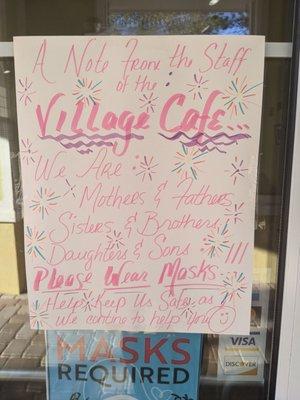 A Note From the Staff
of the :
Village Cafe...
We Are:
Mothers & Fathers
Sisters & Brothers
Daughters & Sons
Please Wear Masks !!!
Help Keep Us Safe as
we contine to help you
MASKS
REQUIRED
VISA
DISCOVER